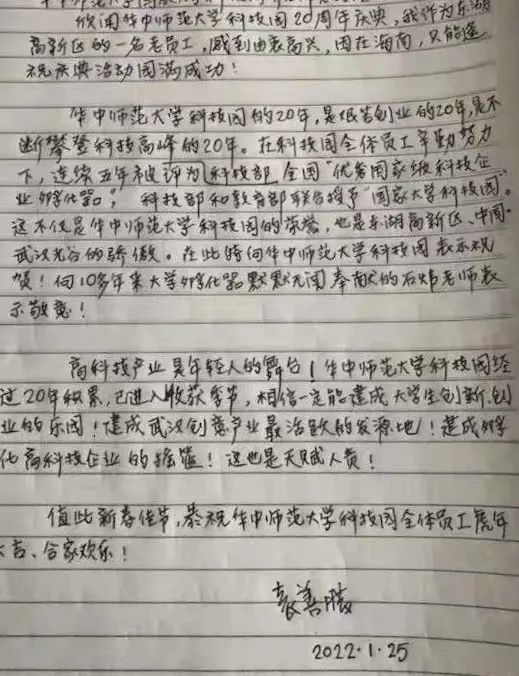 欣闻华中师范大学科技园20周年庆典，我作为东湖
高新区的一名老员工，感到由衷高兴，因在海南，只能遥
祝庆典活动圆满成功！
华中师范大学科技园的20年，是艰苦创业的20年，是不
断攀登科技高峰的20年。在科技园全体员工辛勤努力
下，连续五年被评为科技部全国“优秀国家级科技企
业孵化器”，科技部和教育部联合授予“国家大学科技园”。
这不仅是华中师范大学科技园的荣誉，也是东湖高新区、中国·
武汉光谷的骄傲。在此特向华中师范大学科技园表示祝
贺！向10多年来大学孵化器默默无闻奉献的石炜老师表
示敬意！
高科技产业是年轻人的舞台！华中师范大学科技园经
过20年积累，已进入收获季节，相信一定能建成大学生创新、创
业的乐园！建成武汉创意产业最活跃的发源地！建成孵
化高科技企业的摇篮！这也是天赋人责！
值此新春佳节，恭祝华中师范大学科技园全体员工虎年
大吉、合家欢乐！
袁善腾
2022·1·25